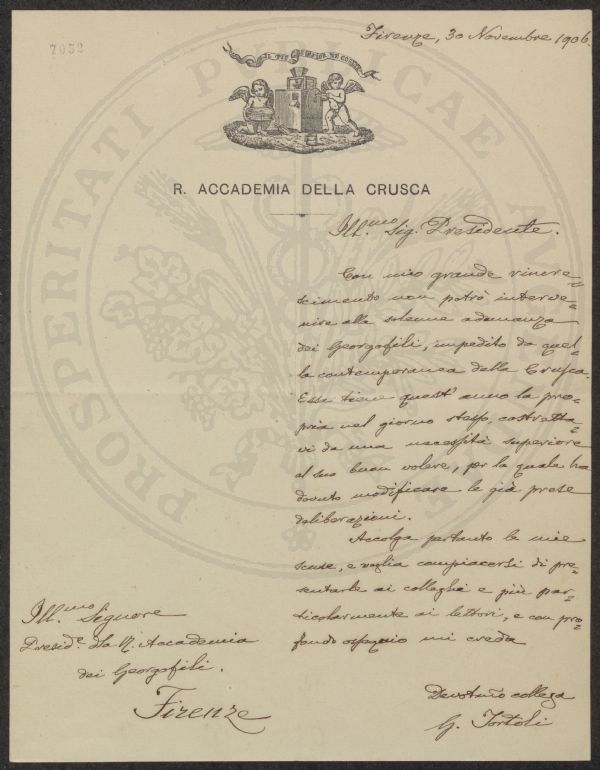 7052
Firenze, 30 Novembre 1906.
R. ACCADEMIA DELLA CRUSCA
Ill.mo Sig. Presidente.
Con mio grande rincre=
scimento non potrò interve=
nire alla solenne adunanza
dei Georgofili, impedito da quel=
la contemporanea della Crusca.
Essa tiene quest'anno la pro=
pria nel giorno stesso, costretta=
vi da una necessità superiore
al suo buon volere, per la quale ha
dovuto modificare le già prese
deliberazioni.
Accolga pertanto le mie
scuse, e voglia compiacersi di pre=
sentarle ai colleghi e più par=
ticolarmente ai lettori, e con pro=
fondo ossequio mi creda
Devotmo collega
G. Tortoli
Ill.mo Signore
Presid.e della R. Accademia
dei Georgofili.
Firenze
PROSPERITATI PUBLICAE